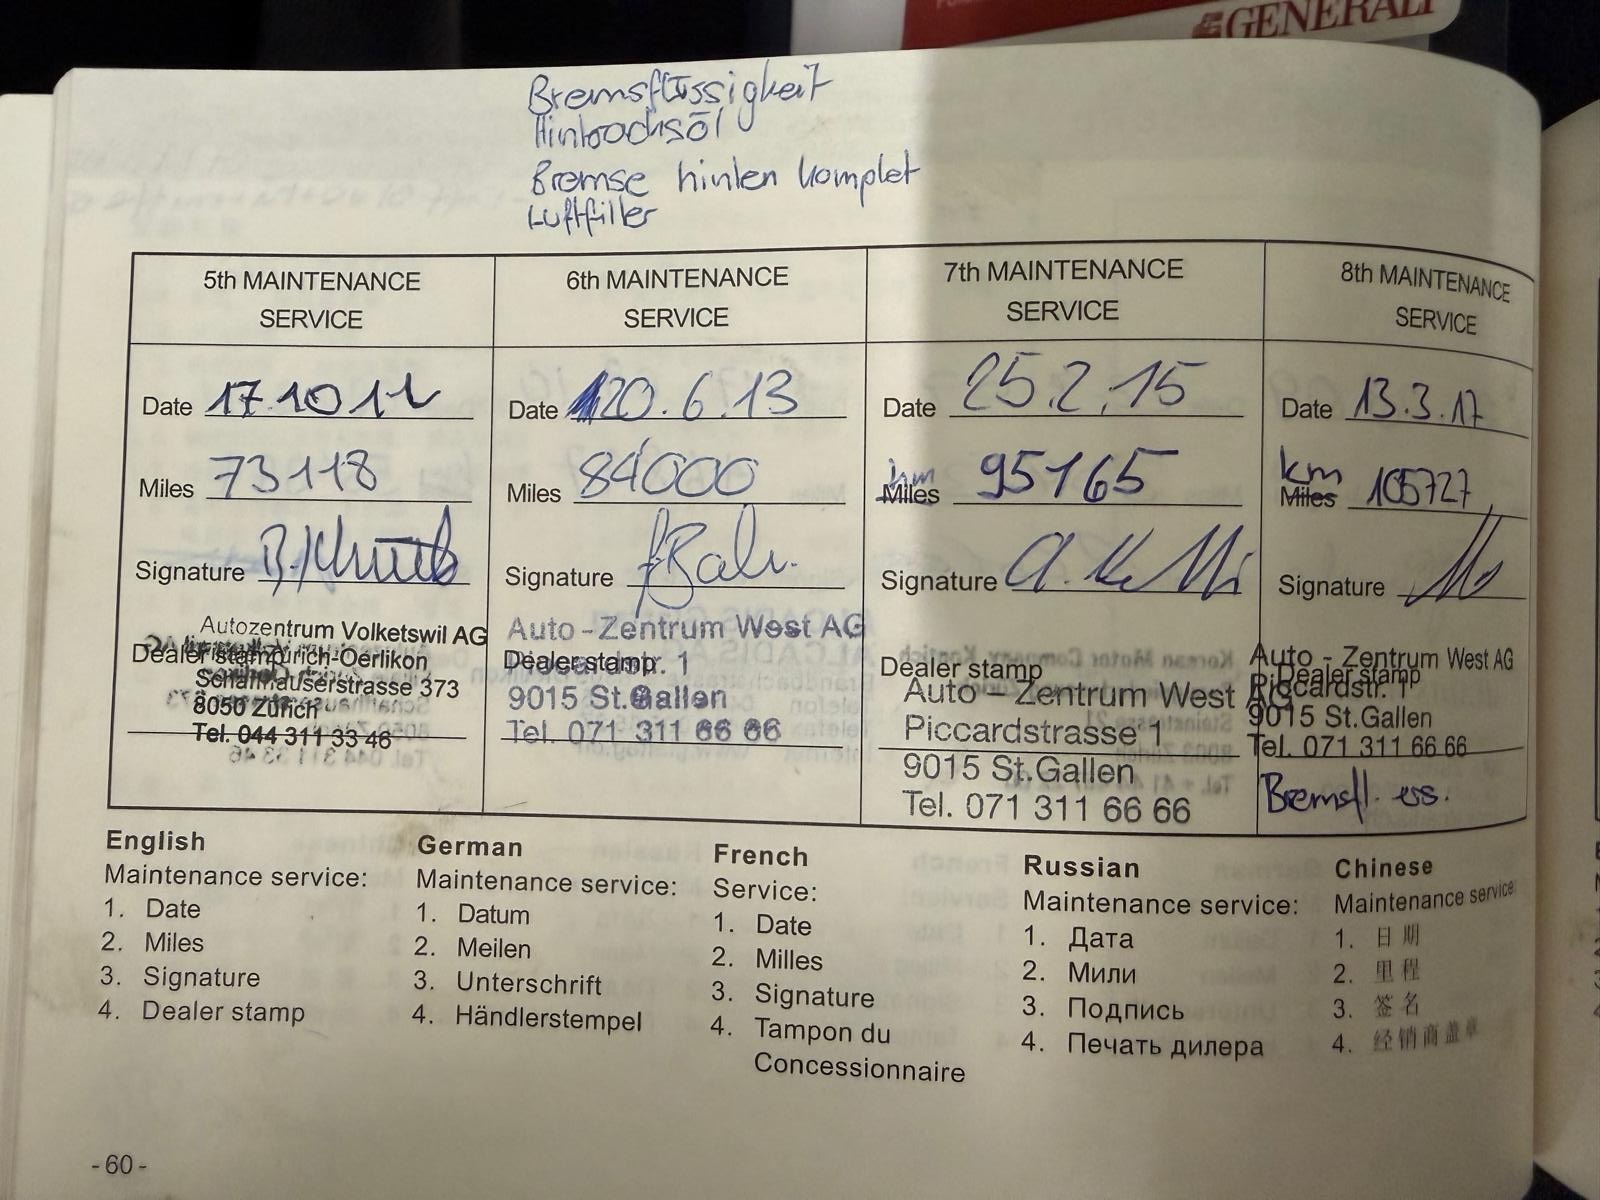 GENERALI
Bremsflüssigkeit
Hintoachsöl
Bremse hinten komplet
Luftfilter
5th MAINTENANCE
SERVICE
Date 17.10 11
Miles 73118
Signature
Autozentrum Volketswil AG
Dealer stamp Zürich-Oerlikon
Schaffhauserstrasse 373
8050 Zürich
Tel. 044 311 33 46
6th MAINTENANCE
SERVICE
Date 20.6.13
Miles 84000
Signature
Auto - Zentrum West AG
Dealer stamp
9015 St.Gallen
Tel. 071 311 66 66
7th MAINTENANCE
SERVICE
Date 25.2.15
km
Miles 95165
Signature
Dealer stamp
Auto - Zentrum West AG
Piccardstrasse 1
9015 St.Gallen
Tel. 071 311 66 66
8th MAINTENANCE
SERVICE
Date 13.3.17
km
Miles 105727
Signature
Auto - Zentrum West AG
Dealer stamp
Piccardstr. 1
9015 St.Gallen
Tel. 071 311 66 66
Bremsfl. ers.
English
Maintenance service:
1. Date
2. Miles
3. Signature
4. Dealer stamp
German
Maintenance service:
1. Datum
2. Meilen
3. Unterschrift
4. Händlerstempel
French
Service:
1. Date
2. Milles
3. Signature
4. Tampon du
Concessionnaire
Russian
Maintenance service:
1. Дата
2. Мили
3. Подпись
4. Печать дилера
Chinese
Maintenance service
1. 日期
2. 里程
3. 签名
4. 经销商盖章
- 60 -